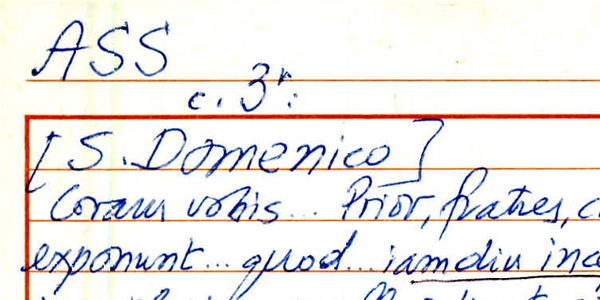 ASS
c. 3r:
[S. Domenico]
Coram vobis... Prior, fratres, c
exponunt... quod... iamdiu inc